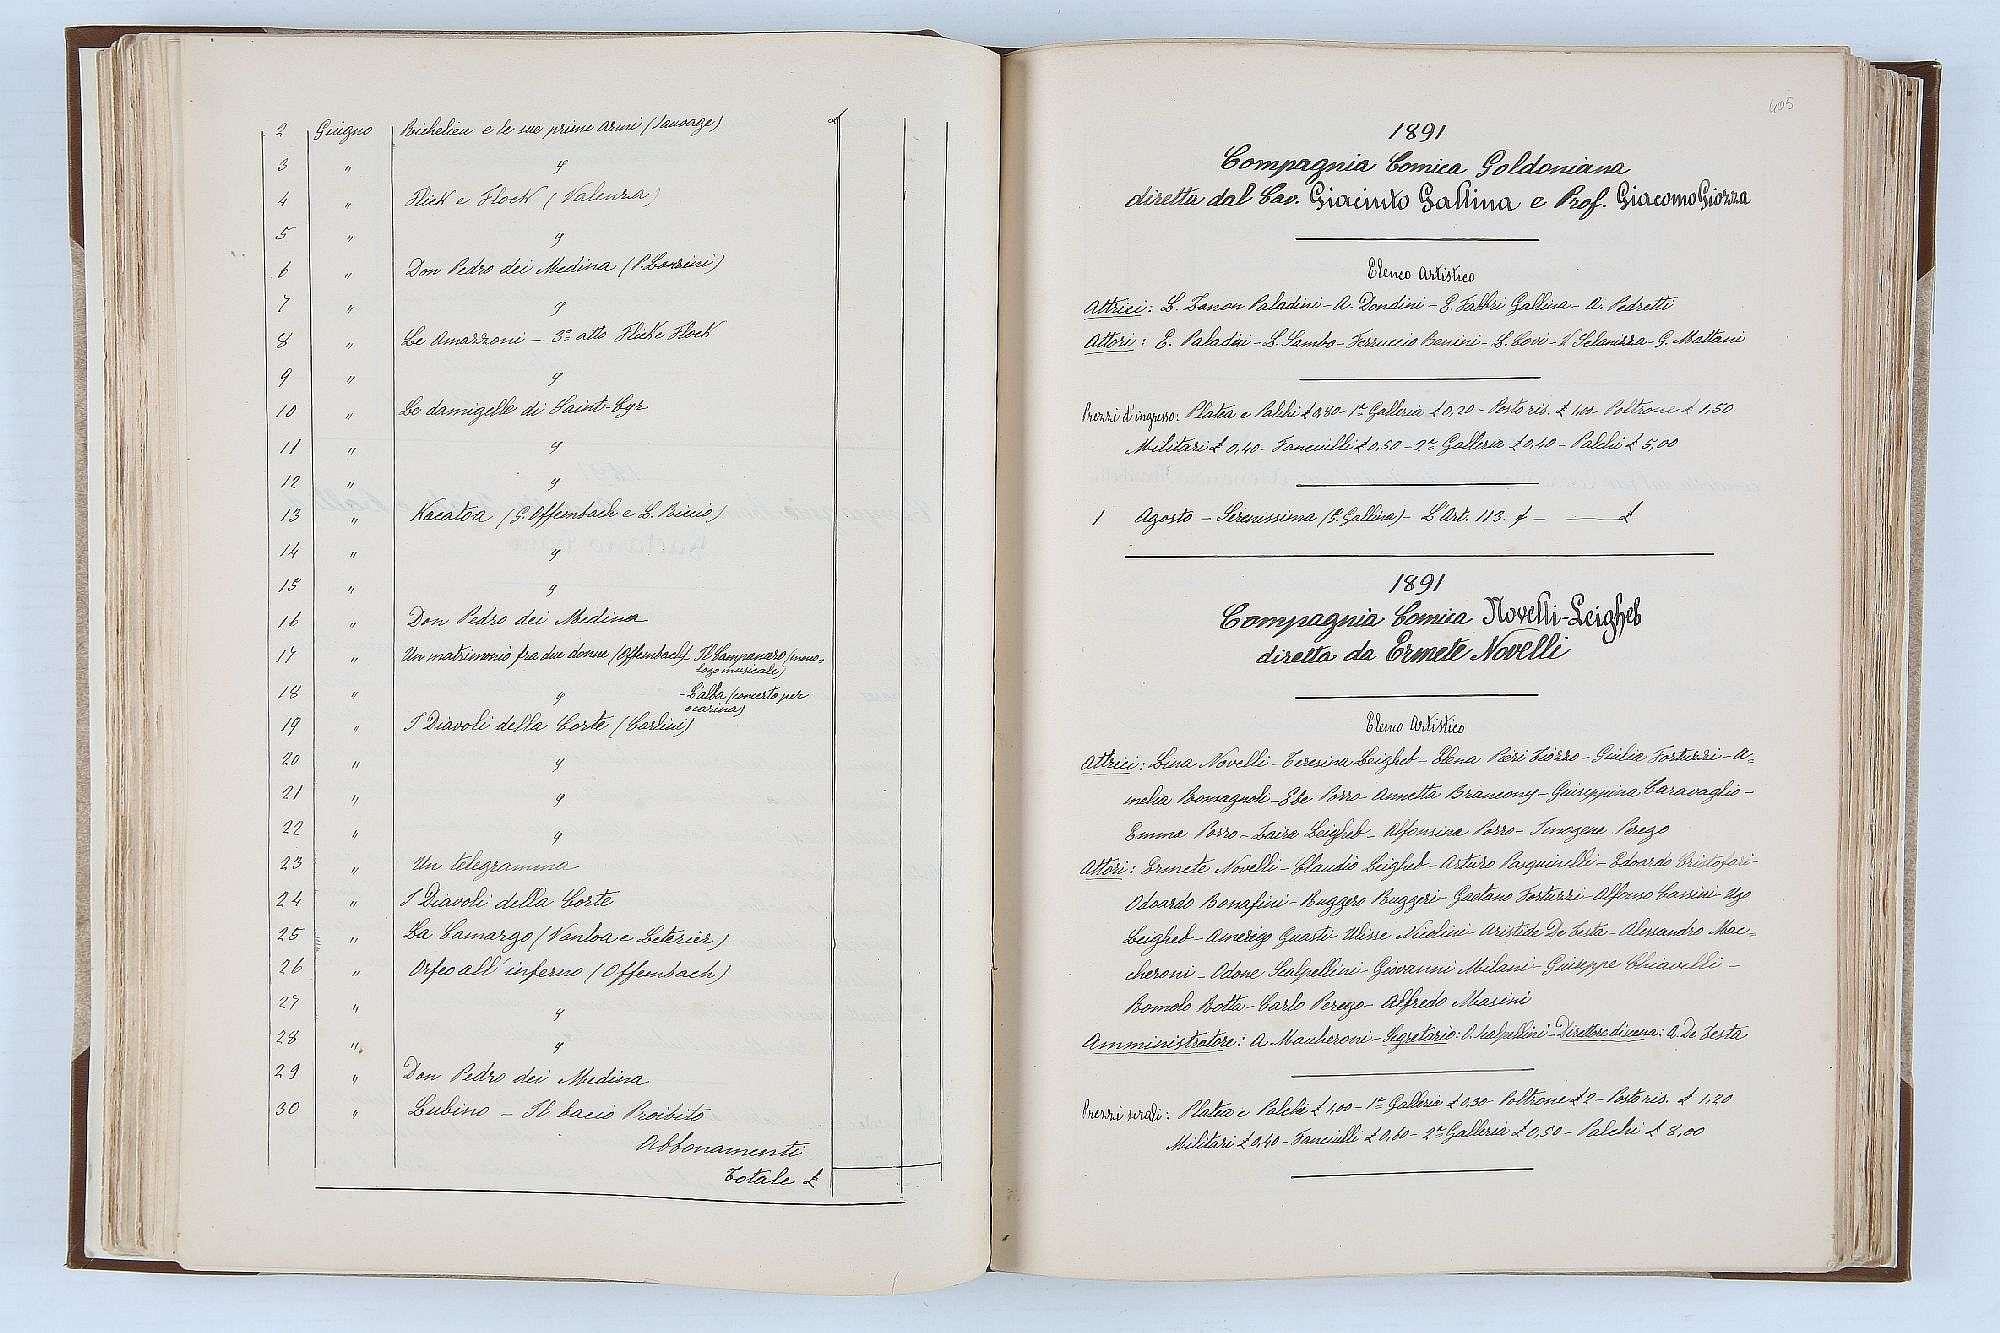 2 Giugno Richelieu e le sue prime armi (Sauvage)
3 " "
4 " Flick e Flock (Valenza)
5 " "
6 " Don Pedro dei Medina (P. Lanzini)
7 " "
8 " Le Amazzoni - 3° atto Flick e Flock
9 " "
10 " Le damigelle di Saint-Cyr
11 " "
12 " "
13 " Kacatoa (G. Offembach e L. Ricci)
14 " "
15 " "
16 " Don Pedro dei Medina
17 " Un matrimonio fra due donne (Offembach) - Il Campanaro (mono-
logo musicale)
18 " " - L'alba (concerto per
ocarina)
19 " I Diavoli della Corte (Carlini)
20 " "
21 " "
22 " "
23 " Un telegramma
24 " I Diavoli della Corte
25 " La Camargo (Vanloa e Leterier)
26 " Orfeo all'inferno (Offembach)
27 " "
28 " "
29 " Don Pedro dei Medina
30 " Lubino - Il bacio Proibito
Abbonamenti
Totale £
405
1891
Compagnia Comica Goldoniana
diretta dal Cav. Giacinto Gallina e Prof. Giacomo Giozza
Elenco Artistico
Attrici: L. Zanon Paladini - A. Dondini - P. Fabbri Gallina - A. Pedretti
Attori: E. Paladini - L. Sambo - Ferruccio Benini - L. Covi - V. Sclanizza - G. Mattani
Prezzi d'ingresso: Platea e Palchi £ 0,80 - 1ª Galleria £ 0,20 - Posto ris. £ 1,00 Poltrone £ 1,50
Militari £ 0,40 - Fanciulli £ 0,50 - 2ª Galleria £ 0,40 - Palchi £ 5,00
1 Agosto - Serenissima (G. Gallina) - L'Art. 113. £
1891
Compagnia Comica Novelli-Leigheb
diretta da Ermete Novelli
Elenco Artistico
Attrici: Lina Novelli - Teresina Leigheb - Elena Pieri Tiozzo - Giulia Fortuzzi - A-
melia Romagnoli - Ebe Porro - Annetta Brancony - Giuseppina Caravaglio -
Emma Porro - Zaira Leigheb - Alfonsina Porro - Imogene Perego
Attori: Ermete Novelli - Claudio Leigheb - Arturo Pasquinelli - Edoardo Cristofari -
Odoardo Bonafini - Ruggero Ruggeri - Gaetano Fortuzzi - Alfonso Cassini - Ugo
Leigheb - Amerigo Guasti - Ulisse Nicolini - Aristide De Testa - Alessandro Mac-
cheroni - Odone Scalpellini - Giovanni Milani - Giuseppe Chiavelli -
Romolo Rotta - Carlo Perego - Alfredo Masini
Amministratore: A. Maccheroni - Segretario: O. Scalpellini - Direttore di scena: A. De Testa
Prezzi serali: Platea e Palchi £ 1,00 - 1ª Galleria £ 0,30 Poltrone £ 2 - Posto ris. £ 1,20
Militari £ 0,40 - Fanciulli £ 0,60 - 2ª Galleria £ 0,50 - Palchi £ 8,00